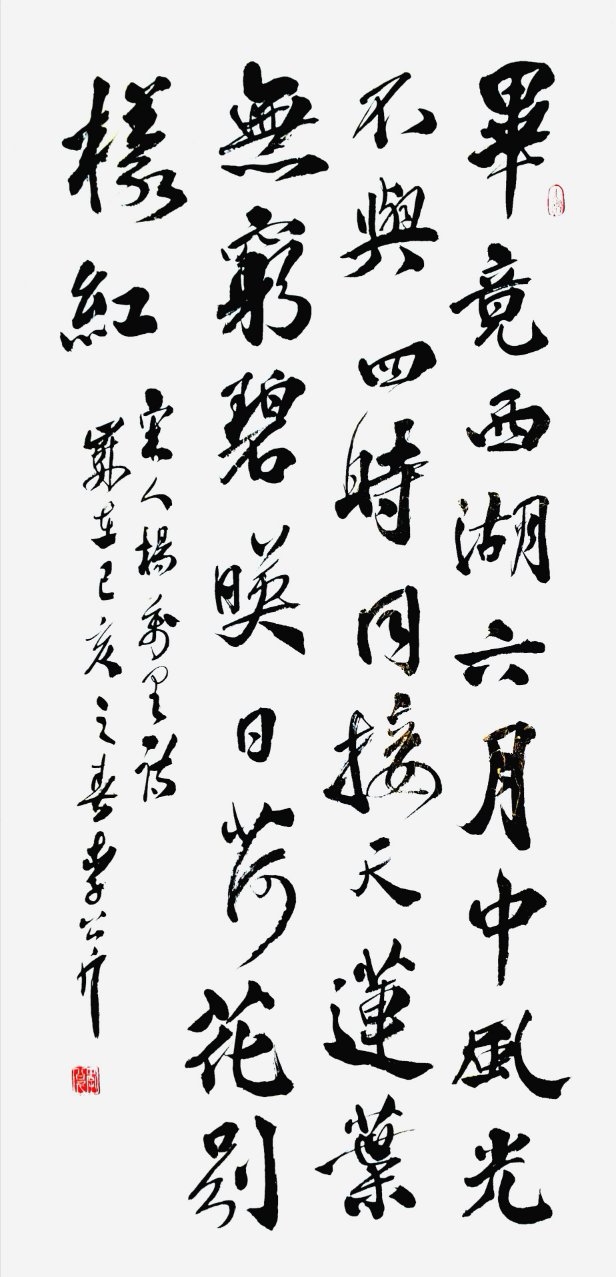 畢竟西湖六月中風光
不與四時同接天蓮葉
無窮碧暎日荷花別
樣紅
宋人楊萬里詩
歲在己亥之春李公